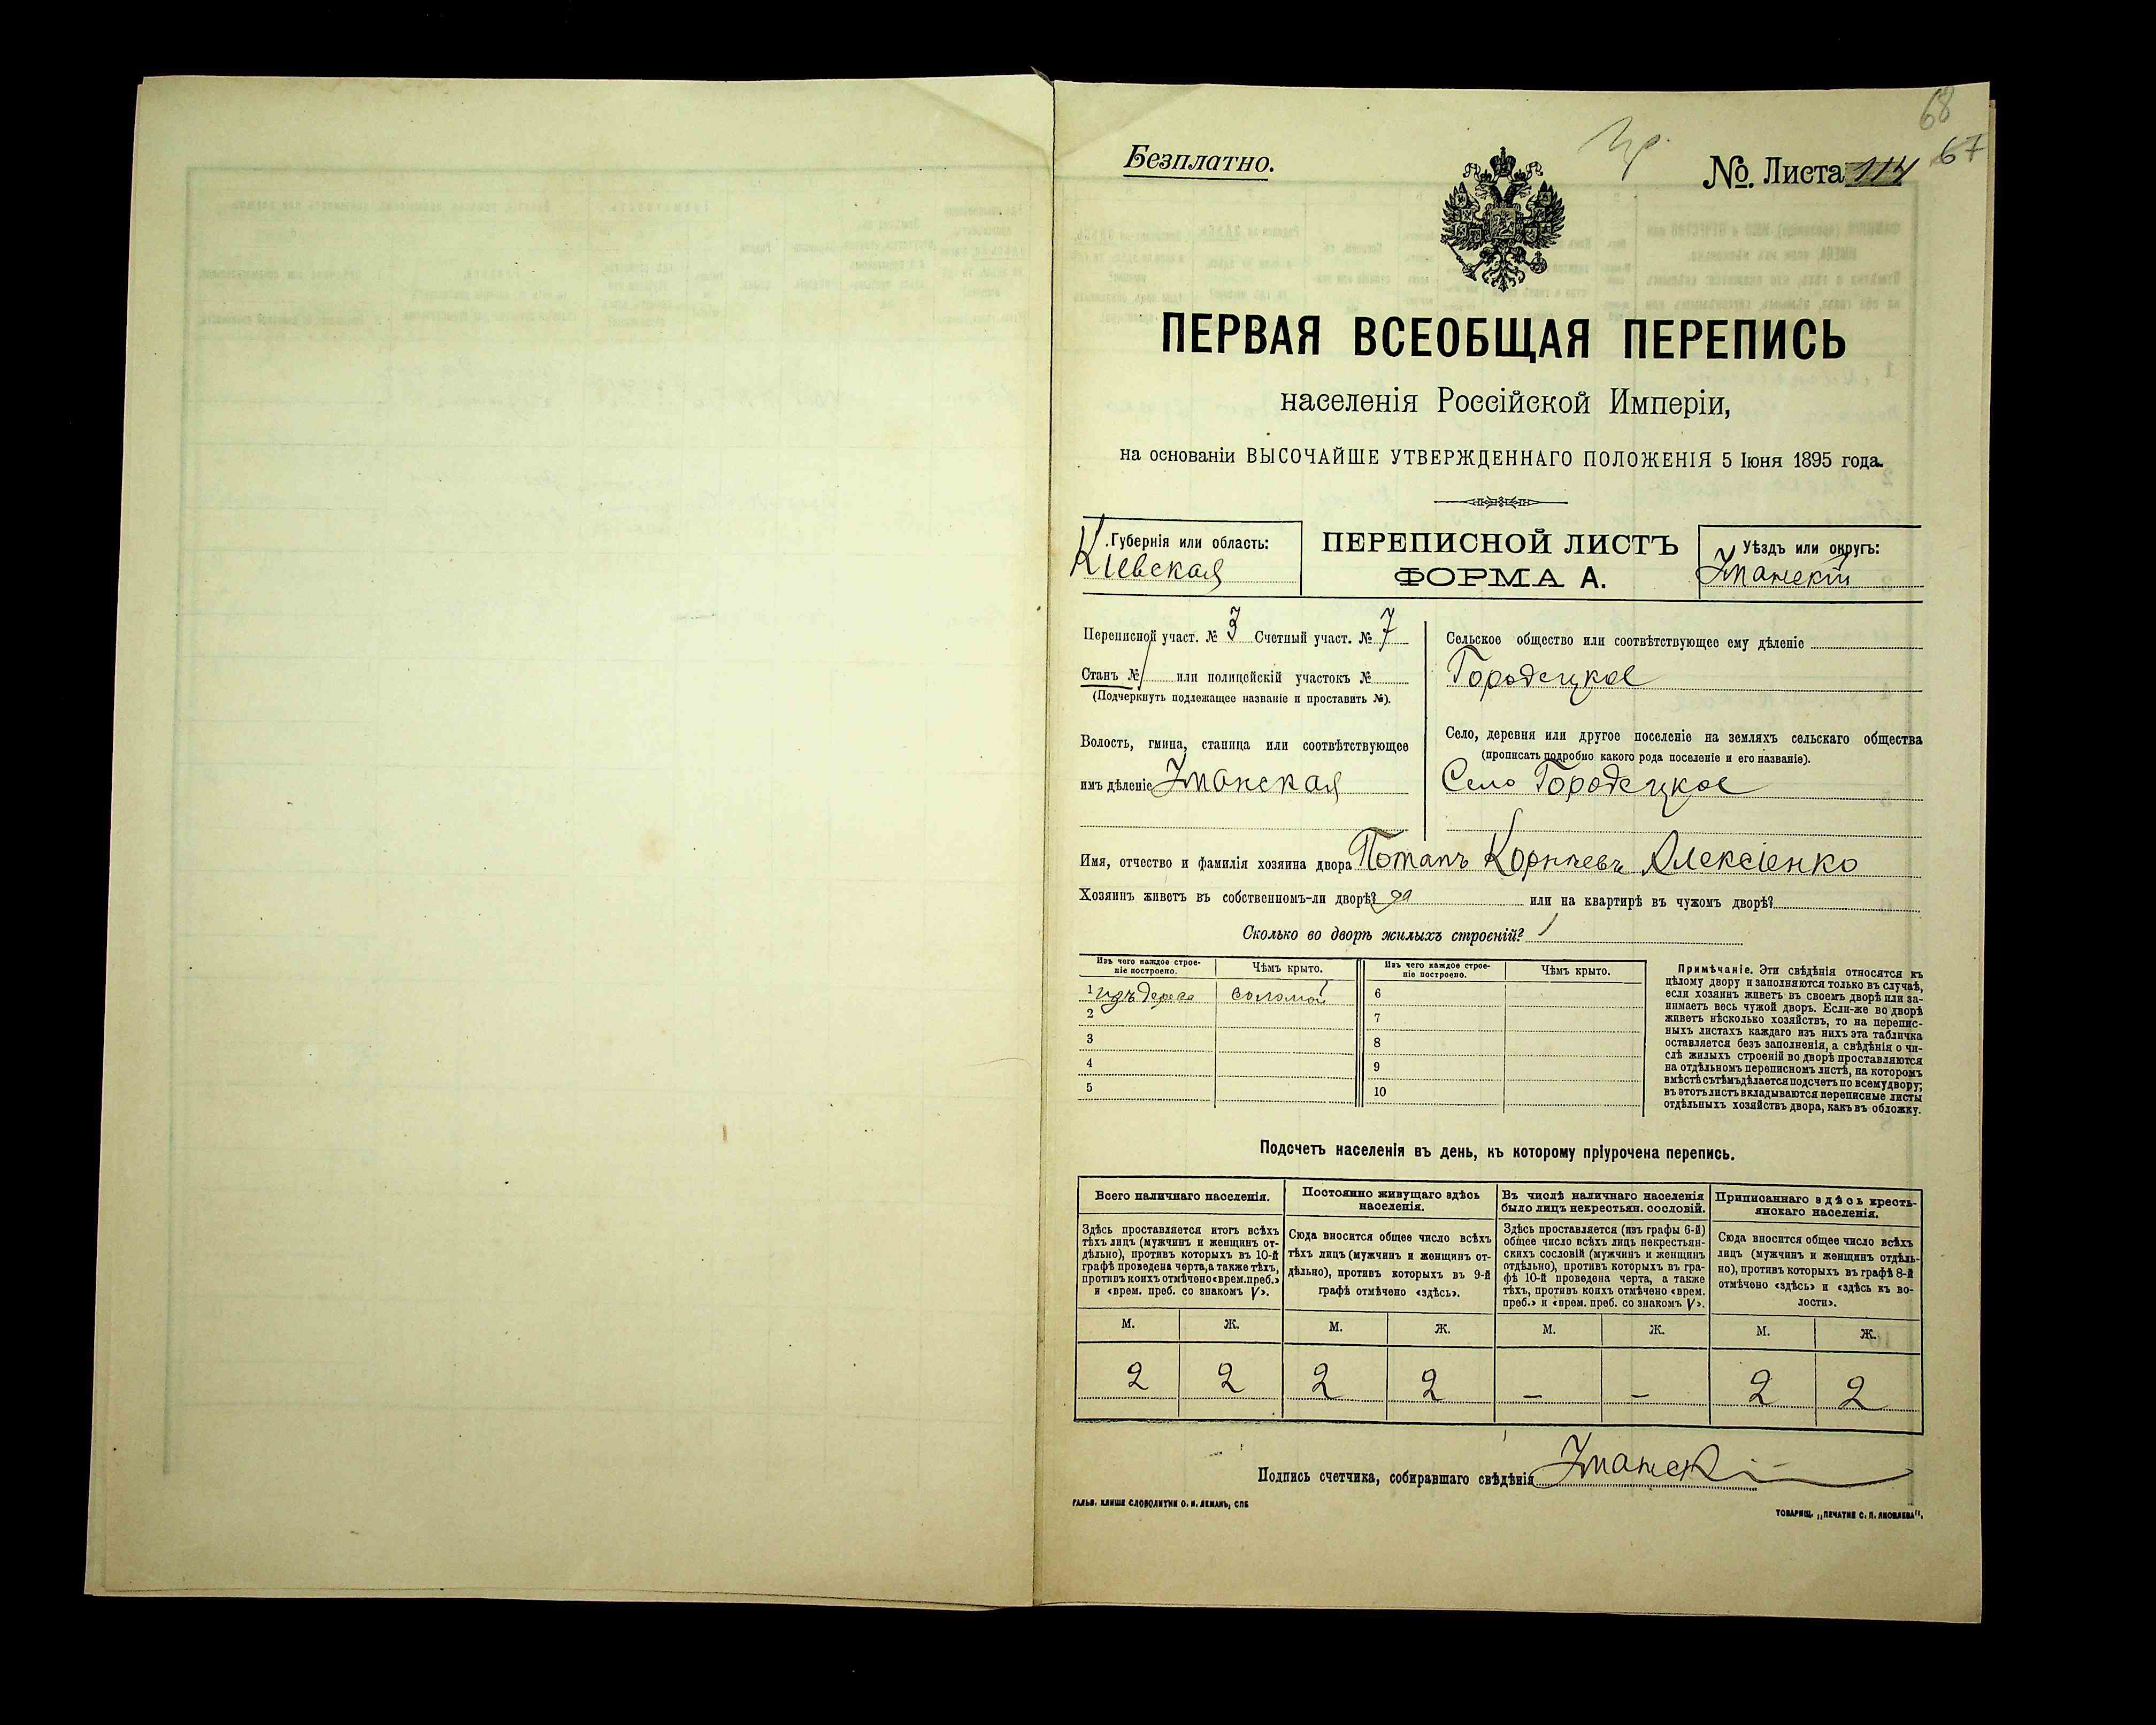 68
67
Безплатно.
№. Листа 114
ПЕРВАЯ ВСЕОБЩАЯ ПЕРЕПИСЬ
населенія Россійской Имперіи,
на основаніи ВЫСОЧАЙШЕ УТВЕРЖДЕННАГО ПОЛОЖЕНІЯ 5 Іюня 1895 года.
Губернія или область:
Кіевская
ПЕРЕПИСНОЙ ЛИСТЪ
ФОРМА А.
Уѣздъ или округъ:
Уманскій
Переписной участ. № 3 Счетный участ. № 7
Станъ № 1 или полицейскій участокъ №
(Подчеркнуть подлежащее названіе и проставить №).
Волость, гмина, станица или соотвѣтствующее
имъ дѣленіе Уманская
Сельское общество или соотвѣтствующее ему дѣленіе
Городецкое
Село, деревня или другое поселеніе на земляхъ сельскаго общества
(прописать подробно какого рода поселеніе и его названіе).
Село Городецкое
Имя, отчество и фамилія хозяина двора Потапъ Корнѣевъ Алексіенко
Хозяинъ живетъ въ собственномъ-ли дворѣ? да или на квартирѣ въ чужомъ дворѣ?
Сколько во дворѣ жилыхъ строеній? 1
Изъ чего каждое строе-
ніе построено.
Чѣмъ крыто.
Изъ чего каждое строе-
ніе построено.
Чѣмъ крыто.
1 изъ дерева соломой 6
2 7
3 8
4 9
5 10
Примѣчаніе. Эти свѣдѣнія относятся къ
цѣлому двору и заполняются только въ случаѣ,
если хозяинъ живетъ въ своемъ дворѣ или за-
нимаетъ весь чужой дворъ. Если-же во дворѣ
живетъ нѣсколько хозяйствъ, то на перепис-
ныхъ листахъ каждаго изъ нихъ эта табличка
оставляется безъ заполненія, а свѣдѣнія о чи-
слѣ жилыхъ строеній во дворѣ проставляются
на отдѣльномъ переписномъ листѣ, на которомъ
вмѣстѣ съ тѣмъ дѣлается подсчетъ по всему двору;
въ этотъ листъ вкладываются переписные листы
отдѣльныхъ хозяйствъ двора, какъ въ обложку.
Подсчетъ населенія въ день, къ которому пріурочена перепись.
Всего наличнаго населенія.
Здѣсь проставляется итогъ всѣхъ
тѣхъ лицъ (мужчинъ и женщинъ от-
дѣльно), противъ которыхъ въ 10-й
графѣ проведена черта, а также тѣхъ,
противъ коихъ отмѣчено «врем. преб.»
и «врем. преб. со знакомъ V».
Постоянно живущаго здѣсь
населенія.
Сюда вносится общее число всѣхъ
тѣхъ лицъ (мужчинъ и женщинъ от-
дѣльно), противъ которыхъ въ 9-й
графѣ отмѣчено «здѣсь».
Въ числѣ наличнаго населенія
было лицъ некрестьян. сословій.
Здѣсь проставляется (изъ графы 6-й)
общее число всѣхъ лицъ некрестьян-
скихъ сословій (мужчинъ и женщинъ
отдѣльно), противъ которыхъ въ гра-
фѣ 10-й проведена черта, а также
тѣхъ, противъ коихъ отмѣчено «врем.
преб.» и «врем. преб. со знакомъ V».
Приписаннаго здѣсь кресть-
янскаго населенія.
Сюда вносится общее число всѣхъ
лицъ (мужчинъ и женщинъ отдѣль-
но), противъ которыхъ въ графѣ 8-й
отмѣчено «здѣсь» и «здѣсь къ во-
лости».
М. Ж. М. Ж. М. Ж. М. Ж.
2 2 2 2 – – 2 2
Подпись счетчика, собиравшаго свѣдѣнія Уманскі
ГАЛЬВ. КЛИШЕ СЛОВОЛИТНИ О. И. ЛЕМАНЪ, СПБ
ТОВАРИЩ. „ПЕЧАТНЯ С. П. ЯКОВЛЕВА".